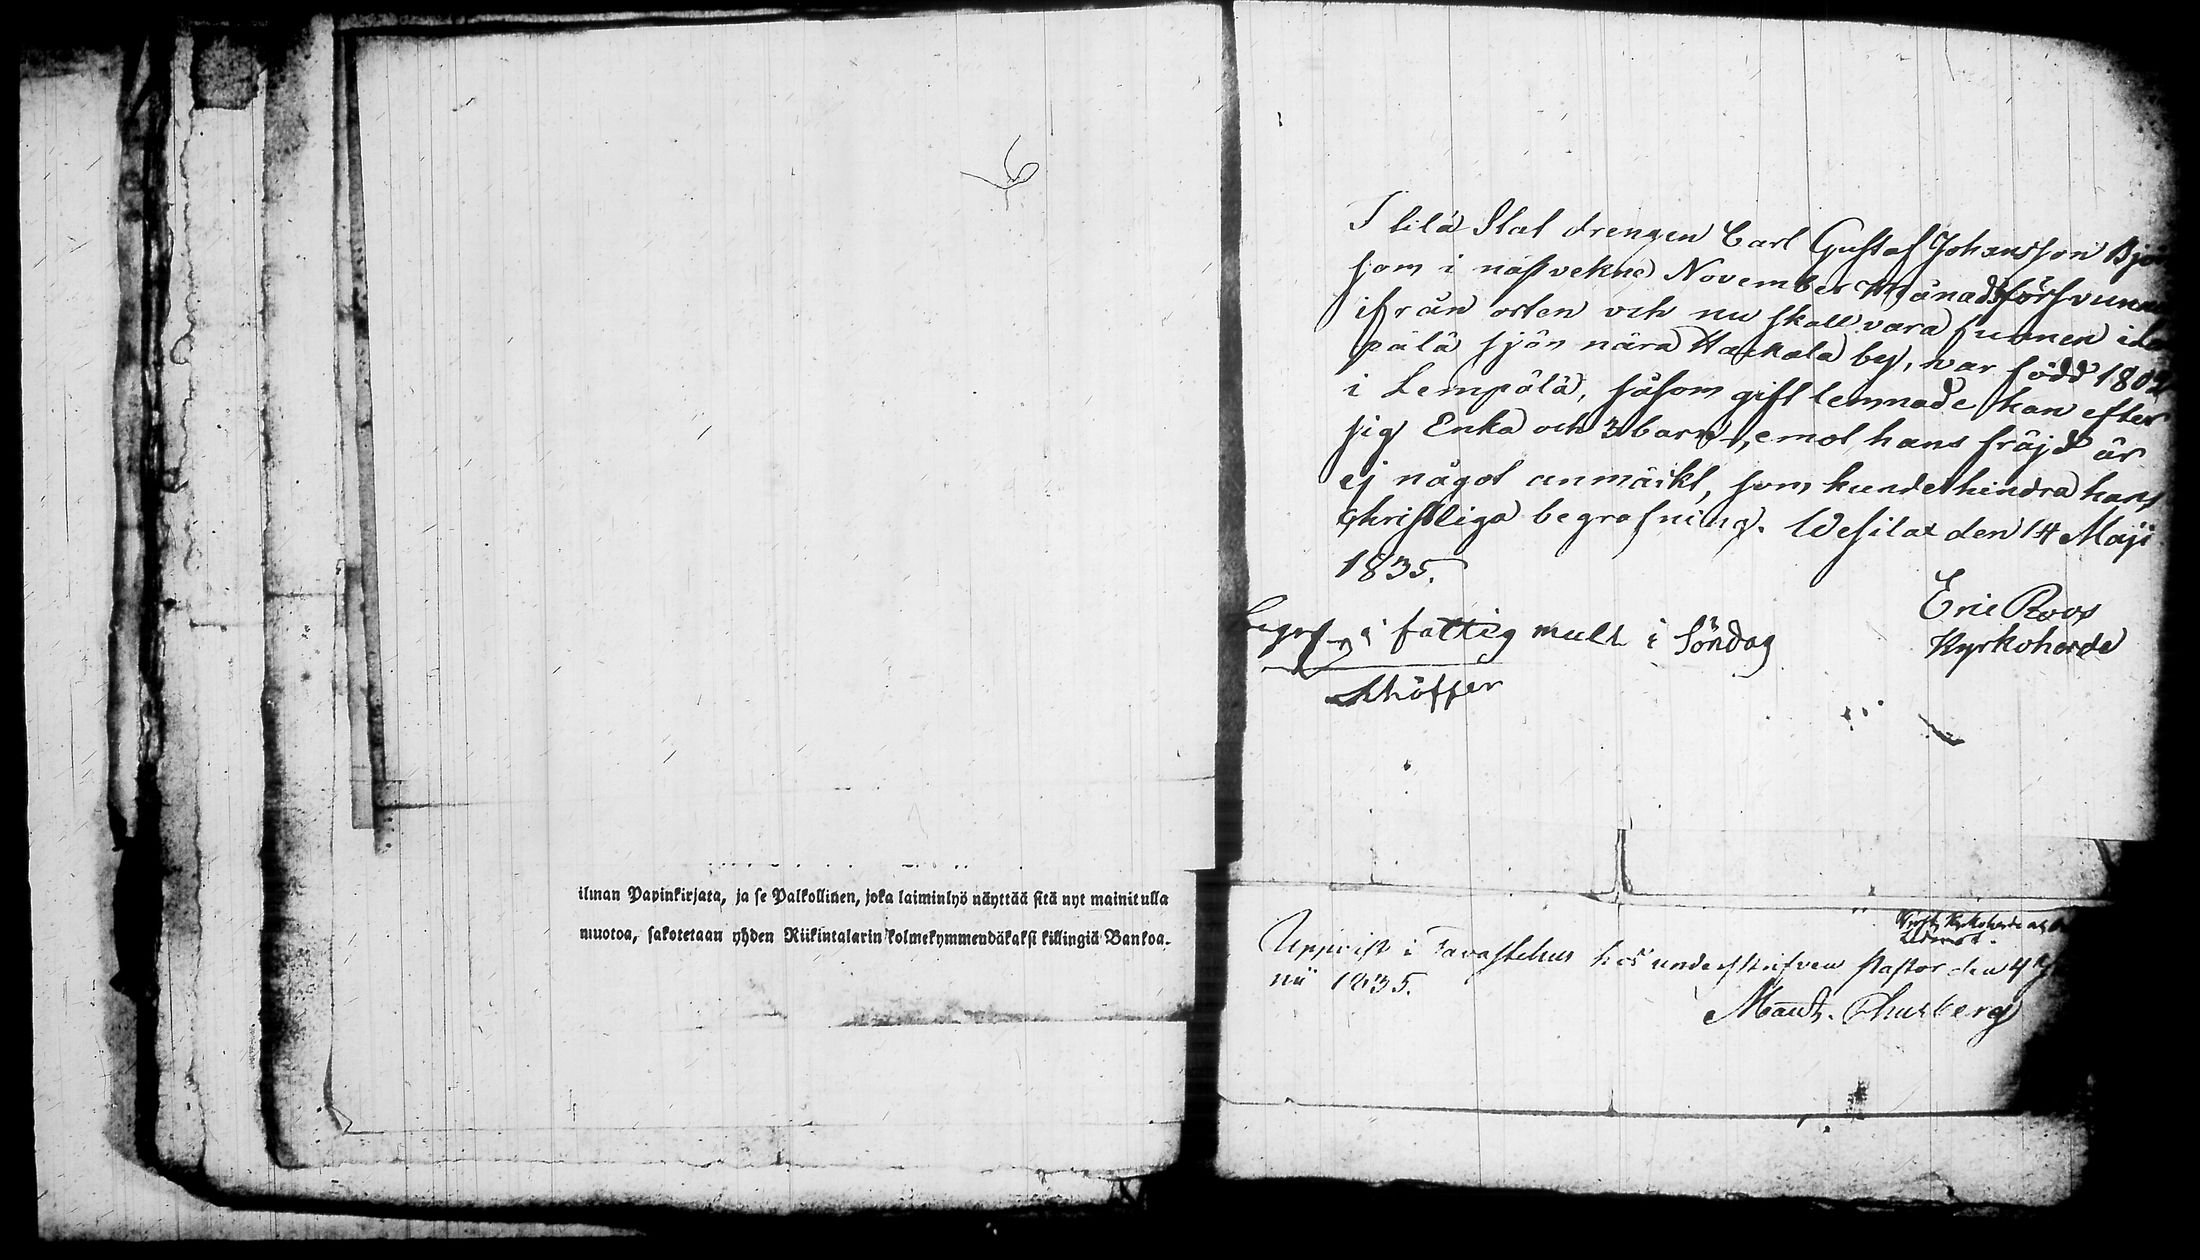 ilman Papinkirjata, ja se Palkollinen, joka laiminlyö näyttää sitä nyt mainitulla
muotoa, sakotetaan yhden Riikintalarin kolmekymmendäkaksi killingiä Bankoa.
Stat drengen Carl Gustaf Johansson
som i näst vekne November Månad försvunn
ifrån orten och nu skall vara funnen i
pälä sjön nära Hackala by, var född 1802
i Lempälä, såsom gift lemnade han efter
sig Enka och 3 barn, emot hans fräjd är
ej något anmärkt, som kunde hindra hans
Christliga begrafning. Wesilax den 14 Maji
1835.
Eric Roos
Kyrkoherde
i fattig mull i Söndag
Uppvist i Tavastehus hos underskrifven Pastor den 4
nii 1835.